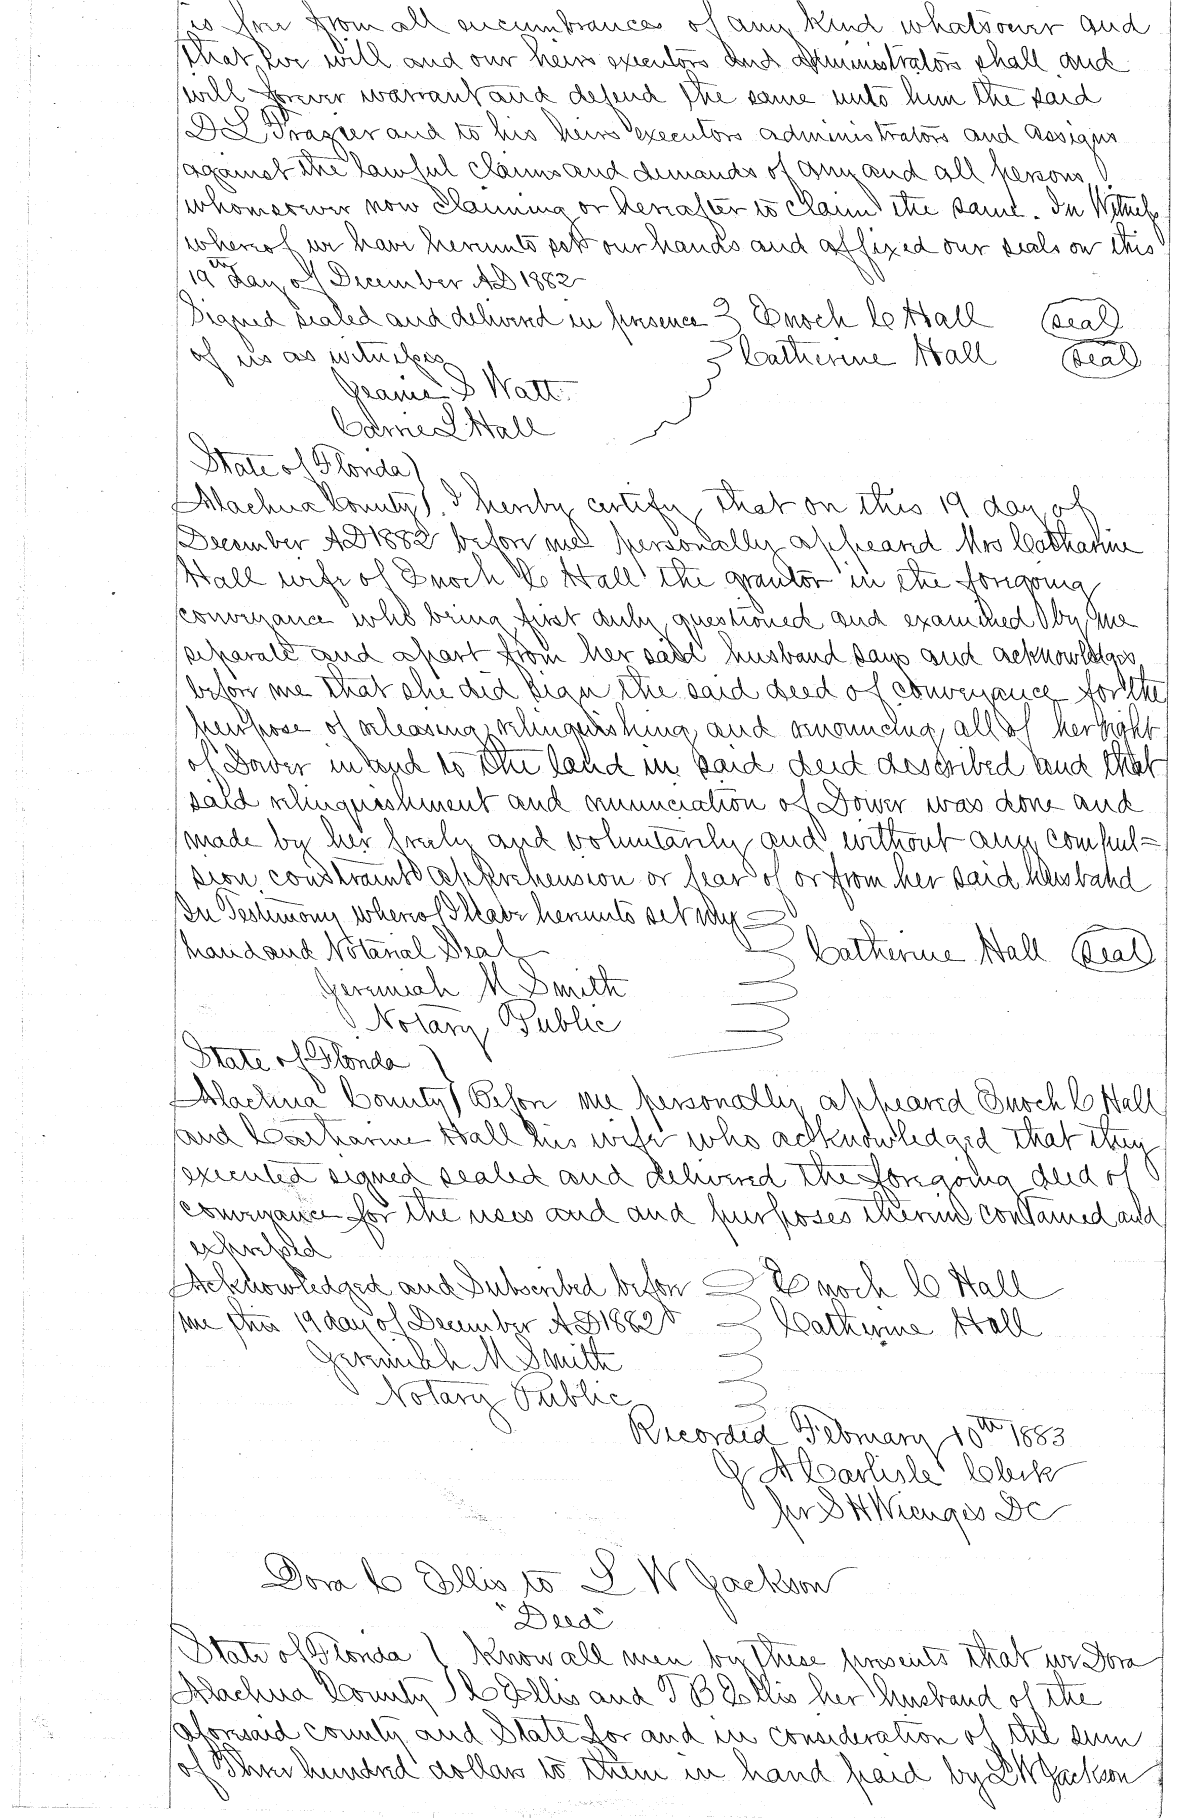 is free from all encumbrances of any kind whatsoever and
that we will and our heirs executors and administrators shall and
will forever warrant and defend the same unto him the said
D L Frazier and to his heirs executors administrators and assigns
against the lawful claims and demands of any and all persons
whomsoever now claiming or hereafter to claim the same. In Witness
whereof we have hereunto set our hands and affixed our seals on this
19th day of December AD 1882
Signed sealed and delivered in presence Enoch C Hall (seal)
of us as witnesses Catherine Hall (seal)
Jeanie S Watt
Carrie L Hall
State of Florida
Alachua County I hereby certify that on this 19 day of
December AD 1882 before me personally appeared Mrs Catharine
Hall wife of Enoch C Hall the grantor in the foregoing
conveyance who being first duly questioned and examined by me
separate and apart from her said husband says and acknowledges
before me that she did sign the said deed of conveyance for the
purpose of releasing relinquishing and renouncing all of her right
of Dower in and to the land in said deed described and that
said relinquishment and renunciation of Dower was done and
made by her freely and voluntarily and without any compul=
sion constraint apprehension or fear of or from her said husband
In Testimony whereof I have hereunto set my
hand and Notarial Seal Catherine Hall (seal)
Jeremiah M Smith
Notary Public
State of Florida
Alachua County Before me personally appeared Enoch C Hall
and Catharine Hall his wife who acknowledged that they
executed signed sealed and delivered the foregoing deed of
conveyance for the uses and and purposes therein contained and
expressed
Acknowledged and Subscribed before Enoch C Hall
me this 19 day of December AD 1882 Catherine Hall
Jeremiah M Smith
Notary Public
Recorded February 10th 1883
J A Carlisle Clerk
per S H Wienges DC
Dora C Ellis to L W Jackson
"Deed"
State of Florida Know all men by these presents that we Dora
Alachua County C Ellis and T B Ellis her husband of the
aforesaid county and State for and in consideration of the sum
of Three hundred dollars to them in hand paid by L W Jackson